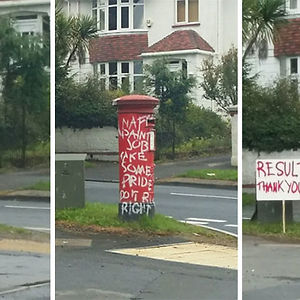 NAFF
PAINT
JOB
TAKE
SOME
PRIDE
DO IT
RIGHT
RESULT
THANK YOU